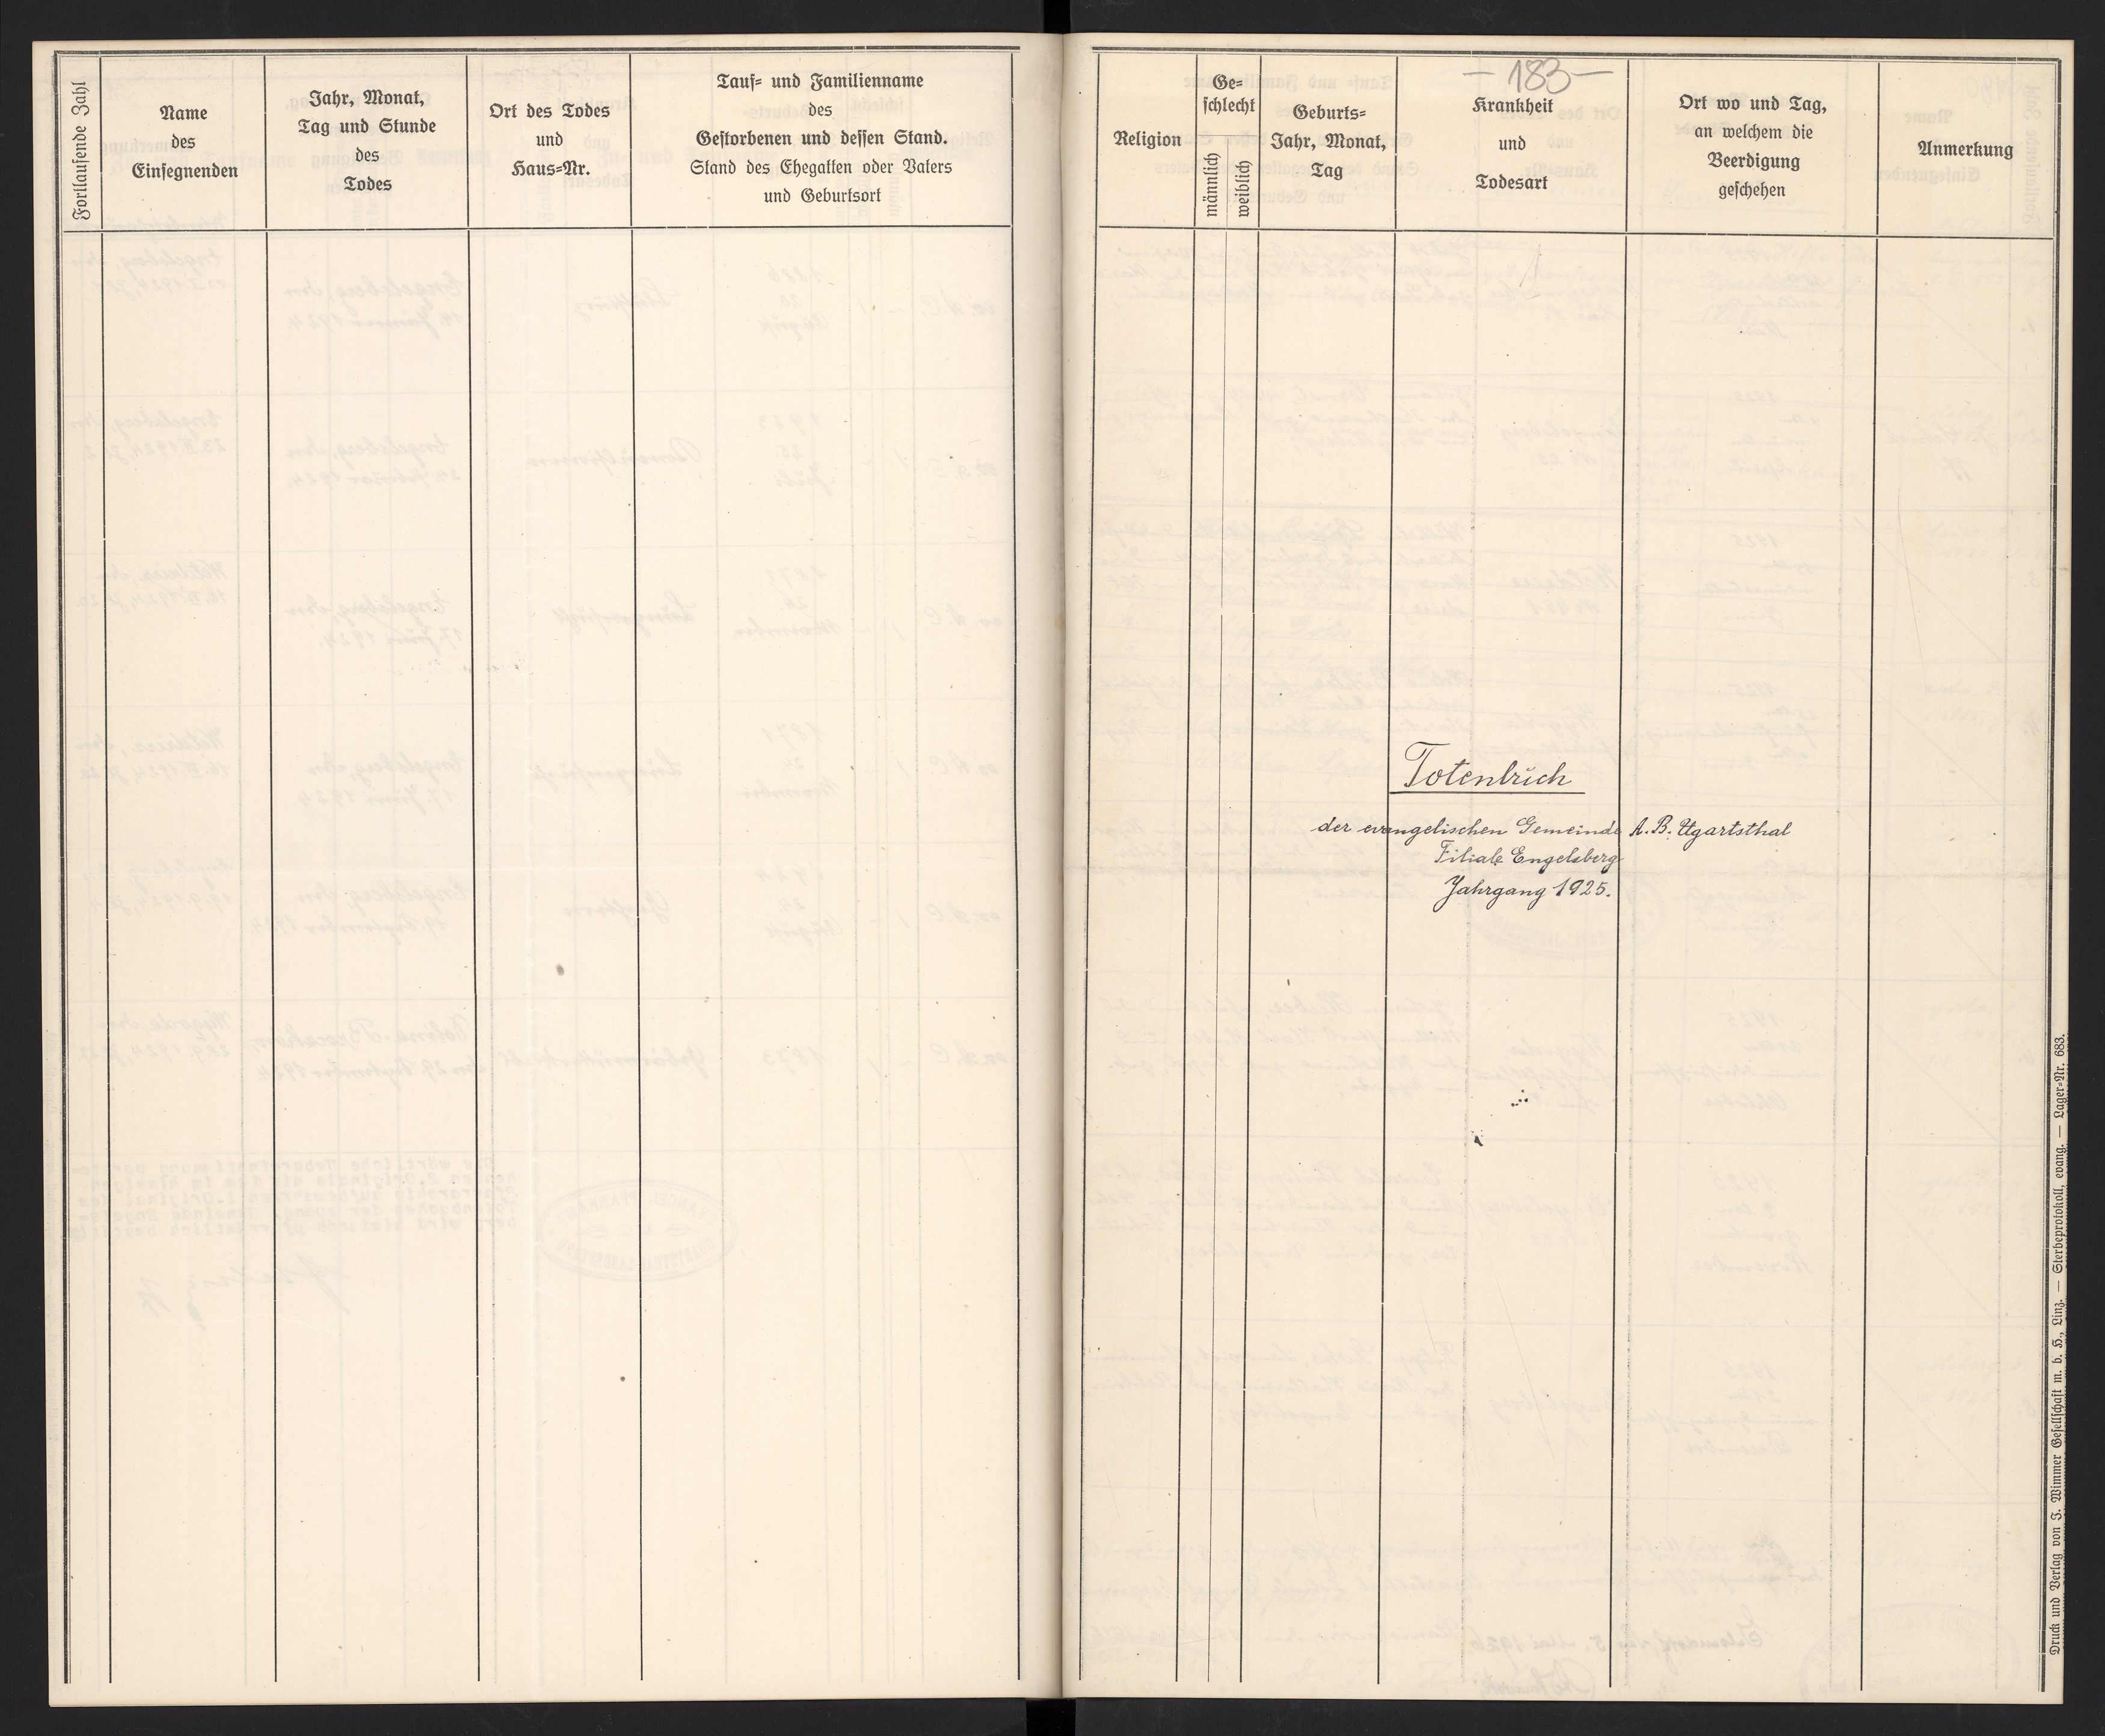 Fortlaufende Zahl
Name
des
Einsegnenden
Jahr, Monat,
Tag und Stunde
des
Todes
Ort des Todes
und
Haus=Nr.
Tauf= und Familienname
des
Gestorbenen und dessen Stand.
Stand des Ehegatten oder Vaters
und Geburtsort
Religion
Ge=
schlecht
männlich
weiblich
Geburts=
Jahr, Monat,
Tag
– 183 –
Krankheit
und
Todesart
Ort wo und Tag,
an welchem die
Beerdigung
geschehen
Anmerkung
Totenbuch
der evangelischen Gemeinde A. B. Ugartsthal
Filiale Engelsberg
Jahrgang 1925.
Druck und Verlag von J. Wimmer Gesellschaft m. b. H., Linz. — Sterbeprotokoll, evang. — Lager=Nr. 683.